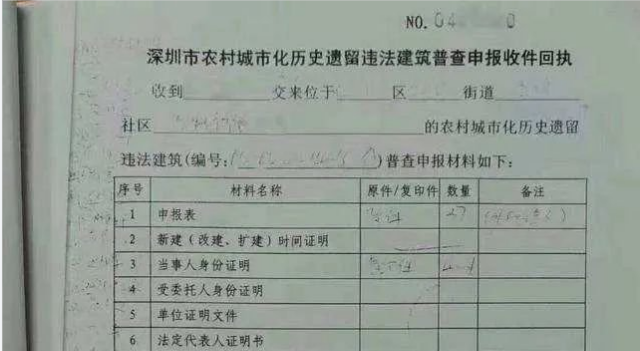 NO. 04
深圳市农村城市化历史遗留违法建筑普查申报收件回执
收到 交来位于 区 街道
社区 的农村城市化历史遗留
违法建筑(编号: )普查申报材料如下:
序号 材料名称 原件/复印件 数量 备注
1 申报表
2 新建（改建、扩建）时间证明
3 当事人身份证明
4 受委托人身份证明
5 单位证明文件
6 法定代表人证明书